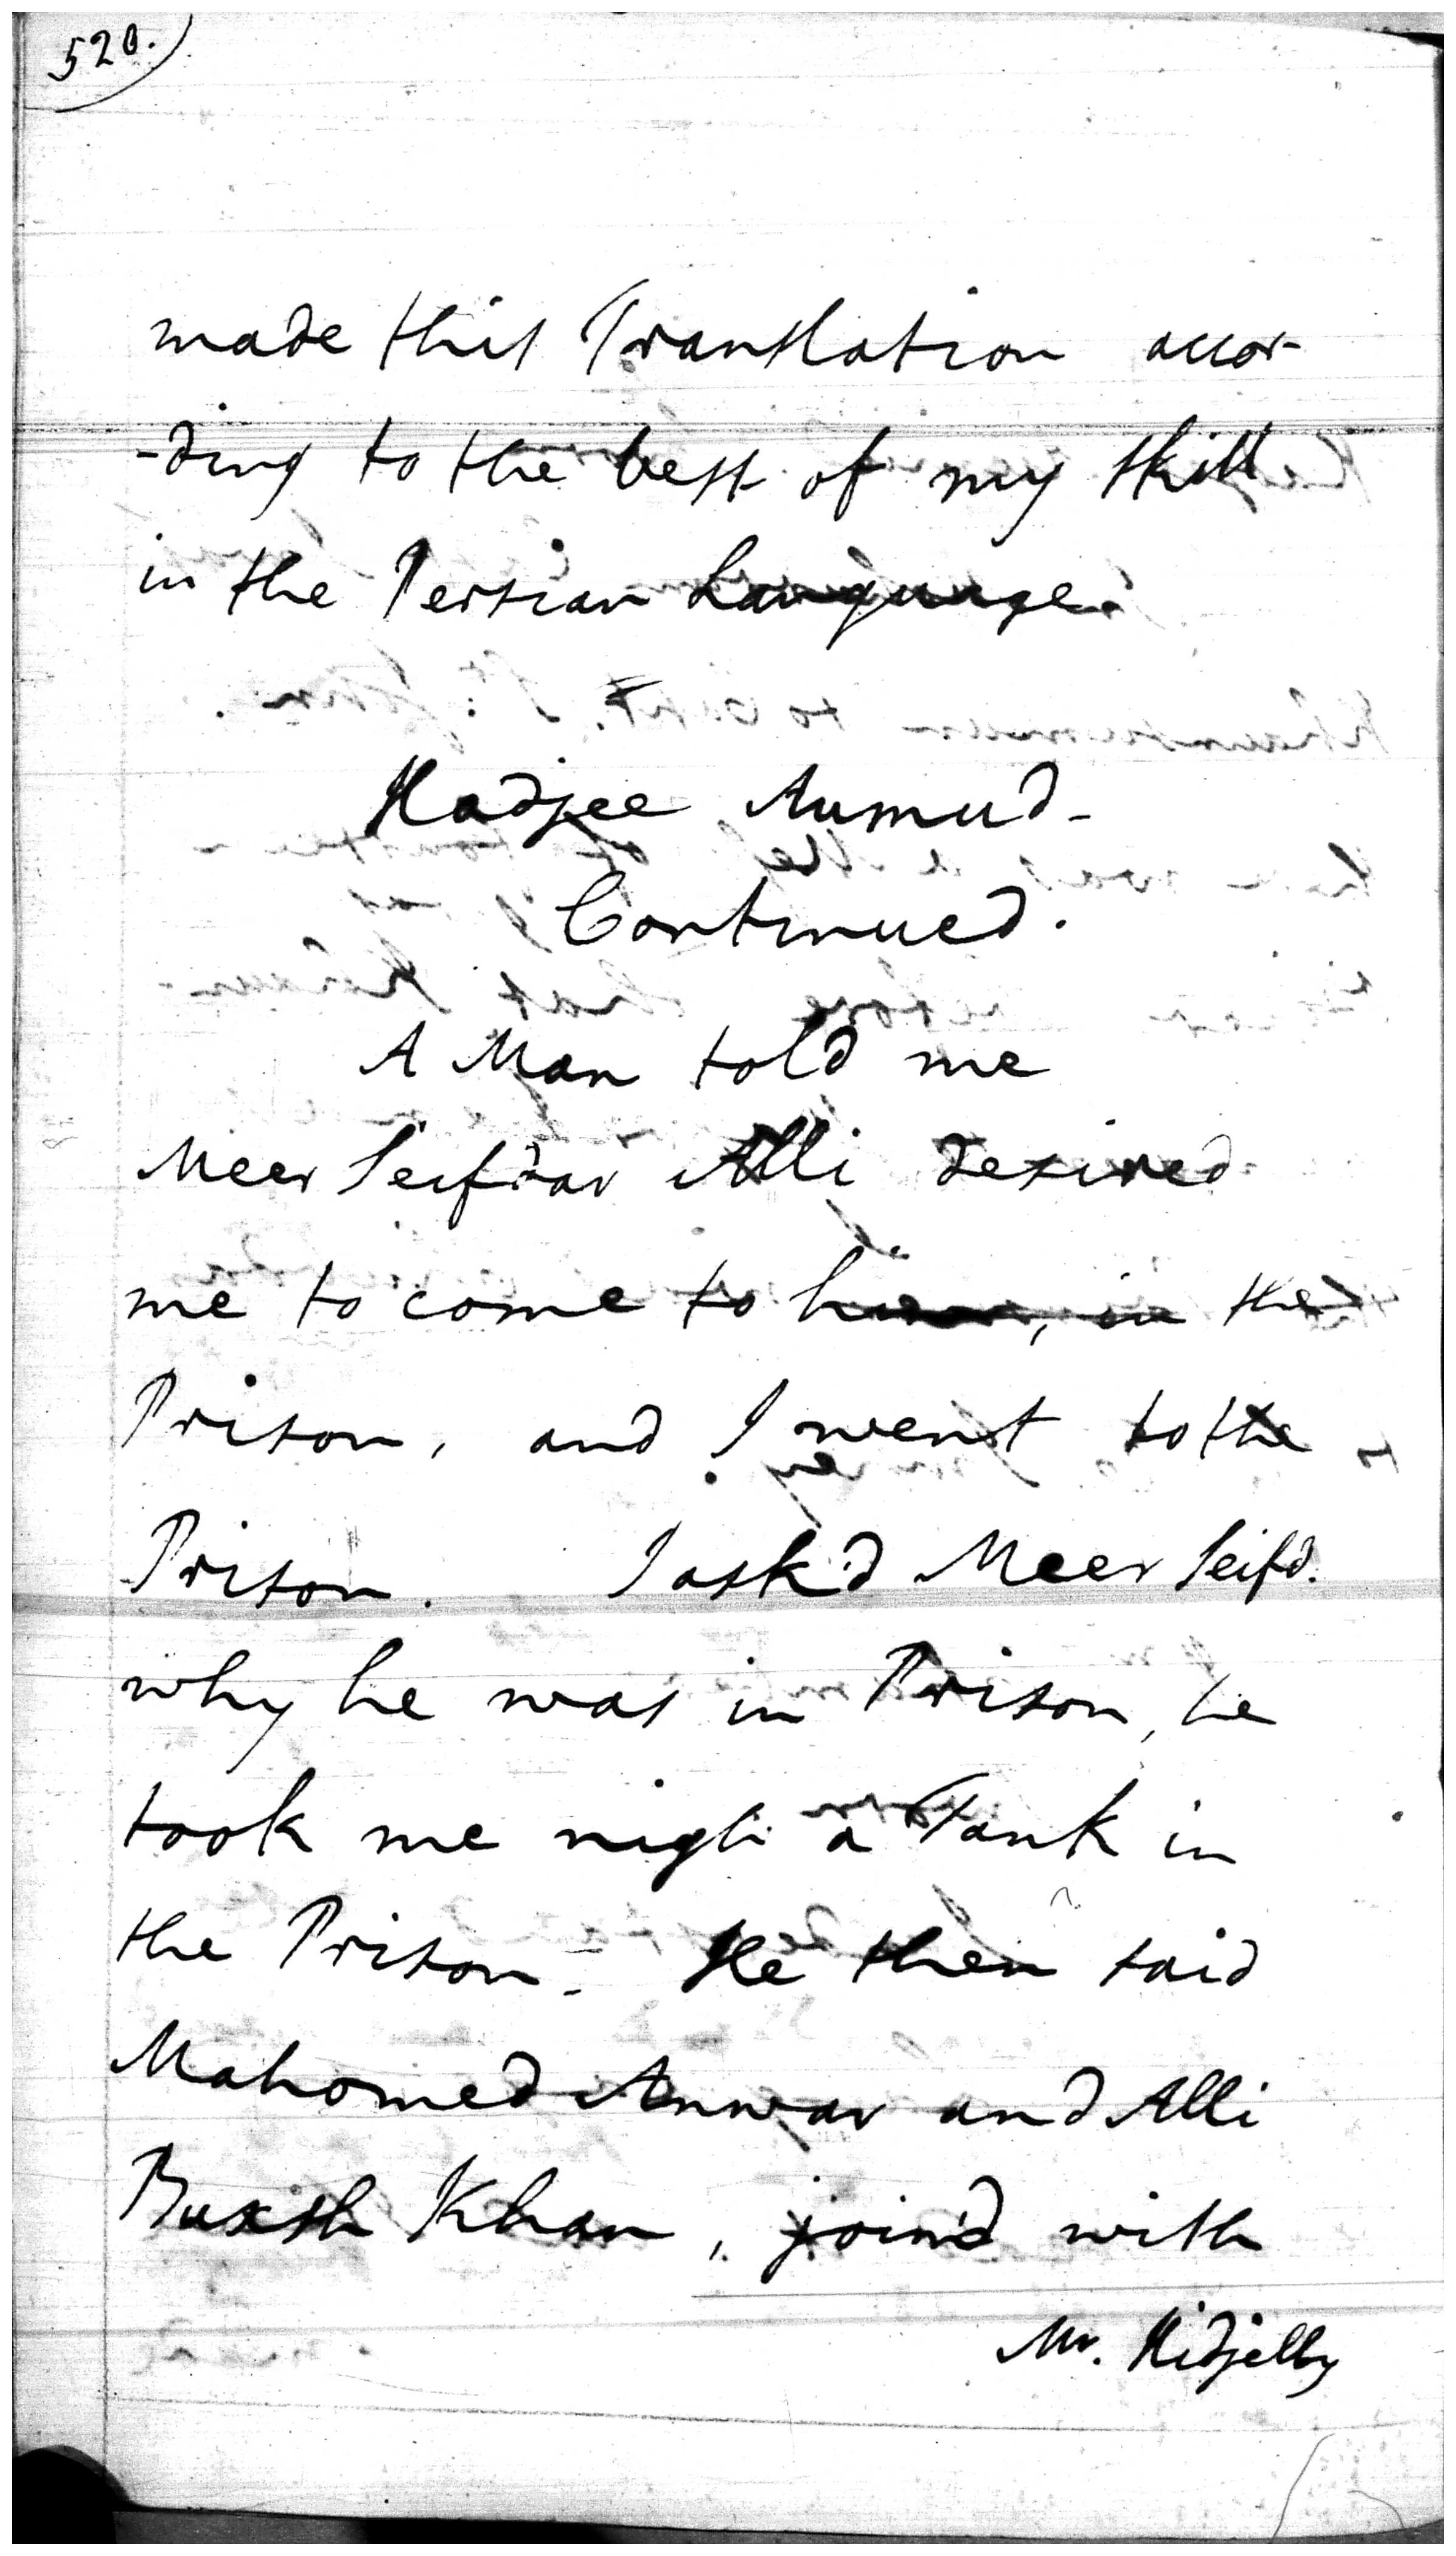 520.
made this Translation accor-
-ding to the best of my skill
in the Persian Language.
Hadjee Aumud-
Continued.
A Man told me
Meer Seifdar Alli desired
me to come to him, in the
Prison, and I went to the
Prison. I ask'd Meer Seifd.
why he was in Prison, he
took me nigh a Tank in
the Prison - He then said
Mahomed Anwar and Alli
Buxsh Khan, join'd with
Mr. Kidjelly